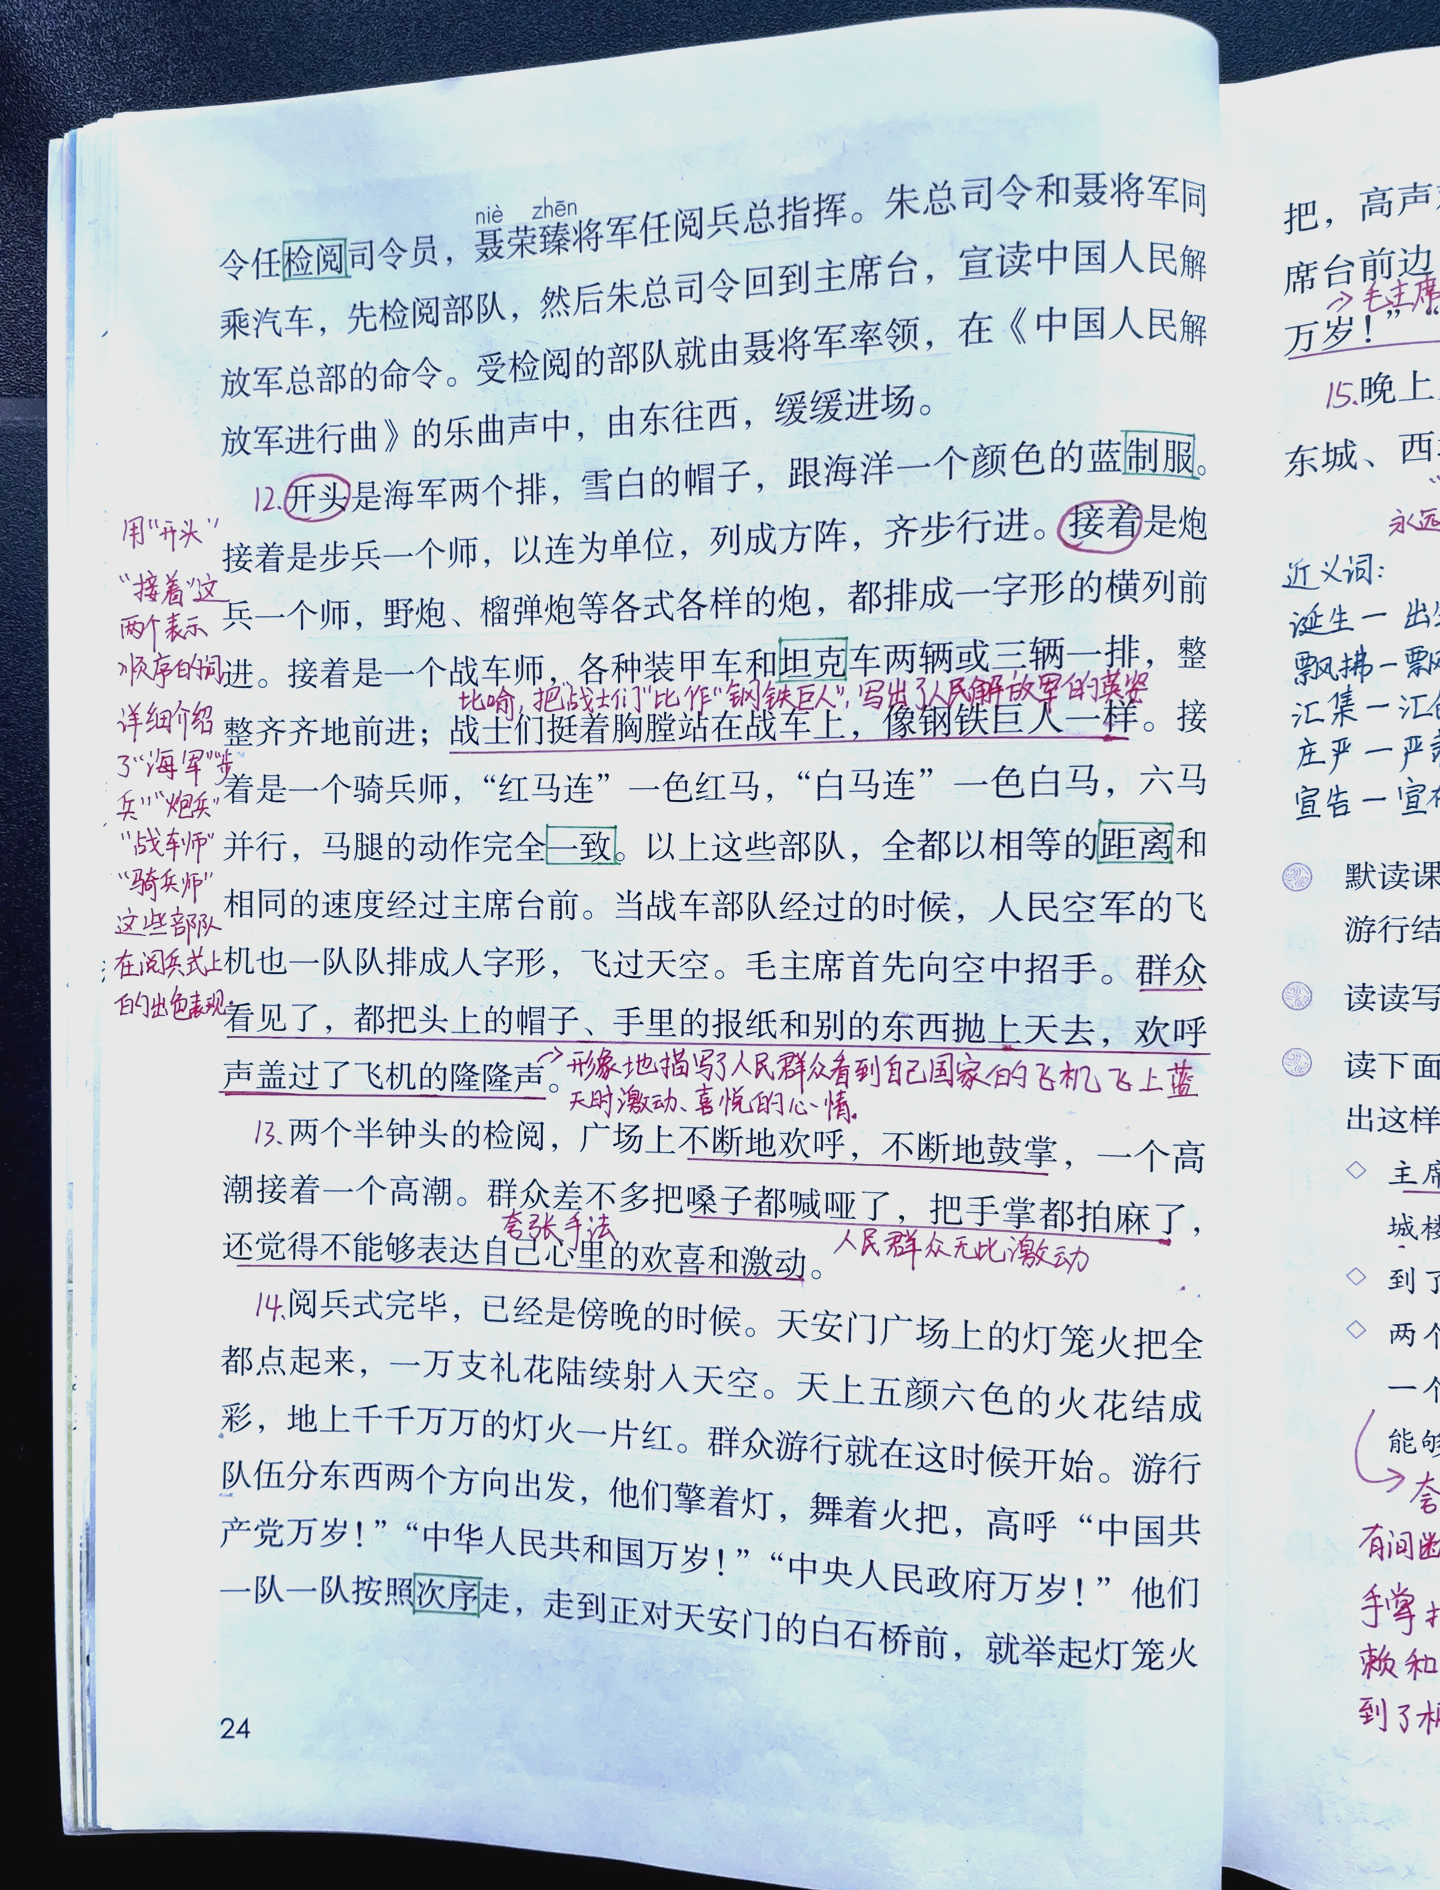 niè zhēn
令任检阅司令员，聂荣臻将军任阅兵总指挥。朱总司令和聂将军同
乘汽车，先检阅部队，然后朱总司令回到主席台，宣读中国人民解
放军总部的命令。受检阅的部队就由聂将军率领，在《中国人民解
放军进行曲》的乐曲声中，由东往西，缓缓进场。
12.开头是海军两个排，雪白的帽子，跟海洋一个颜色的蓝制服。
接着是步兵一个师，以连为单位，列成方阵，齐步行进。接着是炮
兵一个师，野炮、榴弹炮等各式各样的炮，都排成一字形的横列前
进。接着是一个战车师，各种装甲车和坦克车两辆或三辆一排，整
比喻，把"战士们"比作"钢铁巨人"，写出了人民解放军的英姿
整齐齐地前进；战士们挺着胸膛站在战车上，像钢铁巨人一样。接
着是一个骑兵师，“红马连”一色红马，“白马连”一色白马，六马
并行，马腿的动作完全一致。以上这些部队，全都以相等的距离和
相同的速度经过主席台前。当战车部队经过的时候，人民空军的飞
机也一队队排成人字形，飞过天空。毛主席首先向空中招手。群众
看见了，都把头上的帽子、手里的报纸和别的东西抛上天去，欢呼
声盖过了飞机的隆隆声。
→形象地描写了人民群众看到自己国家的飞机飞上蓝
天时激动、喜悦的心情。
13.两个半钟头的检阅，广场上不断地欢呼，不断地鼓掌，一个高
潮接着一个高潮。群众差不多把嗓子都喊哑了，把手掌都拍麻了，
夸张手法
人民群众无比激动
还觉得不能够表达自己心里的欢喜和激动。
14.阅兵式完毕，已经是傍晚的时候。天安门广场上的灯笼火把全
都点起来，一万支礼花陆续射入天空。天上五颜六色的火花结成
彩，地上千千万万的灯火一片红。群众游行就在这时候开始。游行
队伍分东西两个方向出发，他们擎着灯，舞着火把，高呼“中国共
产党万岁！”“中华人民共和国万岁！”“中央人民政府万岁！”他们
一队一队按照次序走，走到正对天安门的白石桥前，就举起灯笼火
24
用"开头"
"接着"这
两个表示
顺序的词
详细介绍
了"海军""步
兵""炮兵"
"战车师"
"骑兵师"
这些部队
在阅兵式上
的出色表现。
把，高声
席台前边
→毛主席
万岁！”“
15.晚上
东城、西
永远
近义词：
诞生一出生
飘拂一飘
汇集一汇
庄严一严
宣告一宣布
默读课
游行结
读读写
读下面
出这样
◇ 主席
城楼
◇ 到了
◇ 两个
一个
能够
→夸
有间
手掌
和
到了